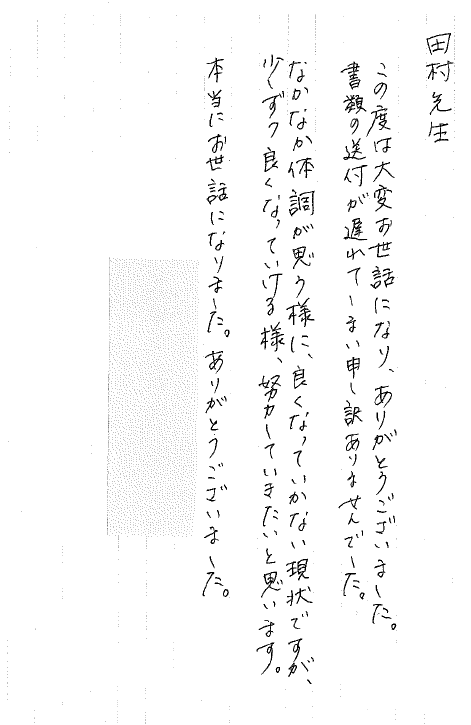 田村先生
この度は大変お世話になり、ありがとうございました。
書類の送付が遅れてしまい申し訳ありませんでした。
なかなか体調が思う様に、良くなっていかない現状ですが、
少しずつ良くなっていける様、努力していきたいと思います。
本当にお世話になりました。ありがとうございました。